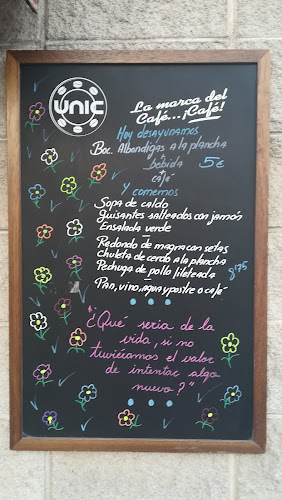 UNIC
La marca del
Café...¡Café!
Hoy desayunamos
Boc. Albondigas a la plancha
+
bebida 5€
+
café
Y comemos
Sopa de caldo
Guisantes salteados con jamón
Ensalada verde
Redondo de magra con setas
Chuleta de cerdo a la plancha
Pechuga de pollo fileteada 8'75
Pan, vino, agua y postre o café
"¿Qué seria de la
vida, si no
tuviéramos el valor
de intentar algo
nuevo?"